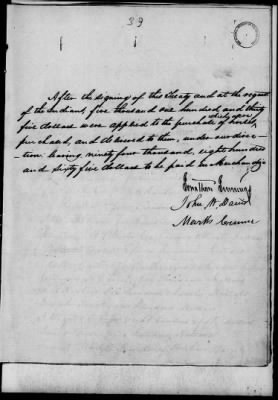 39
After the signing of this Treaty and at the request
of the Indians, five thousand one hundred and thirty
five dollars were applied to the purchase of horses,
which were
purchased, and delivered to them, under our direc-
-tion leaving ninety four thousand, eight hundred
and sixty five dollars to be paid in Merchandize
Jonathan Jennings
John W. Davis
Marks Crume